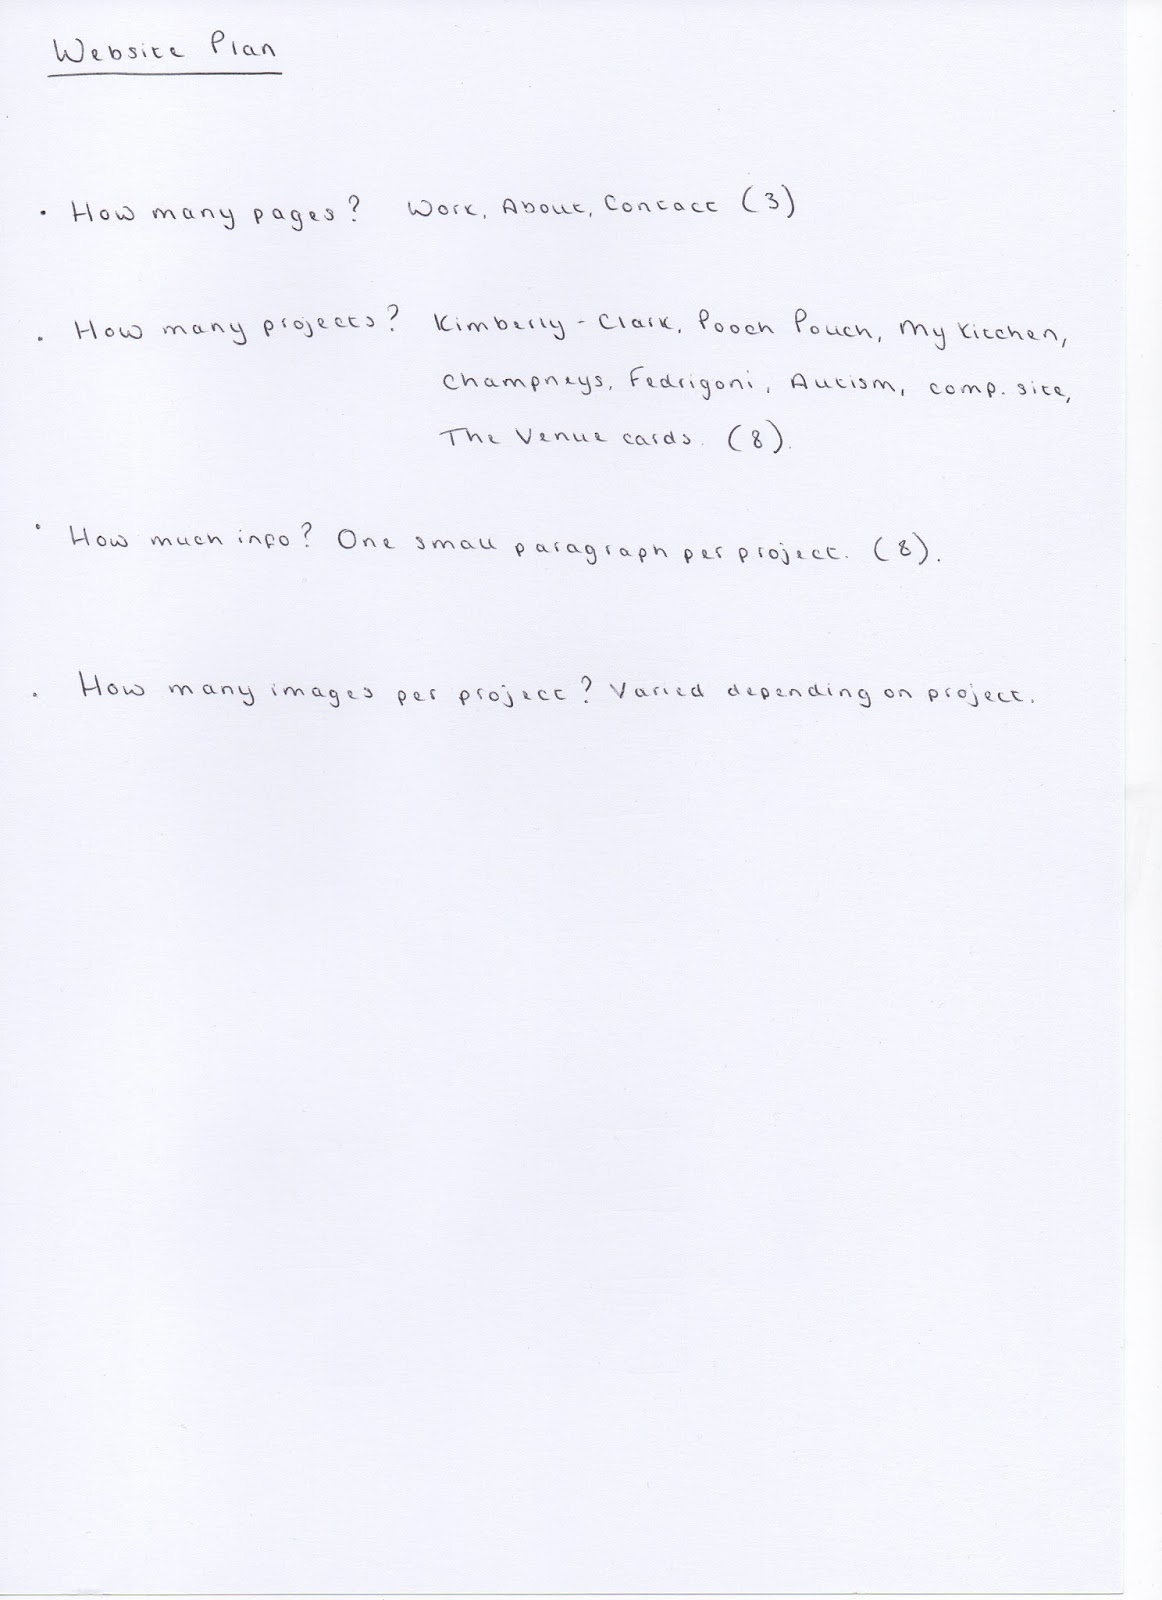 Website Plan
· How many pages? Work, About, Contact (3)
· How many projects? Kimberly-Clark, Pooch Pouch, My Kitchen,
Champneys, Fedrigoni, Autism, comp. site,
The Venue cards. (8).
· How much info? One small paragraph per project. (8).
· How many images per project? Varied depending on project.